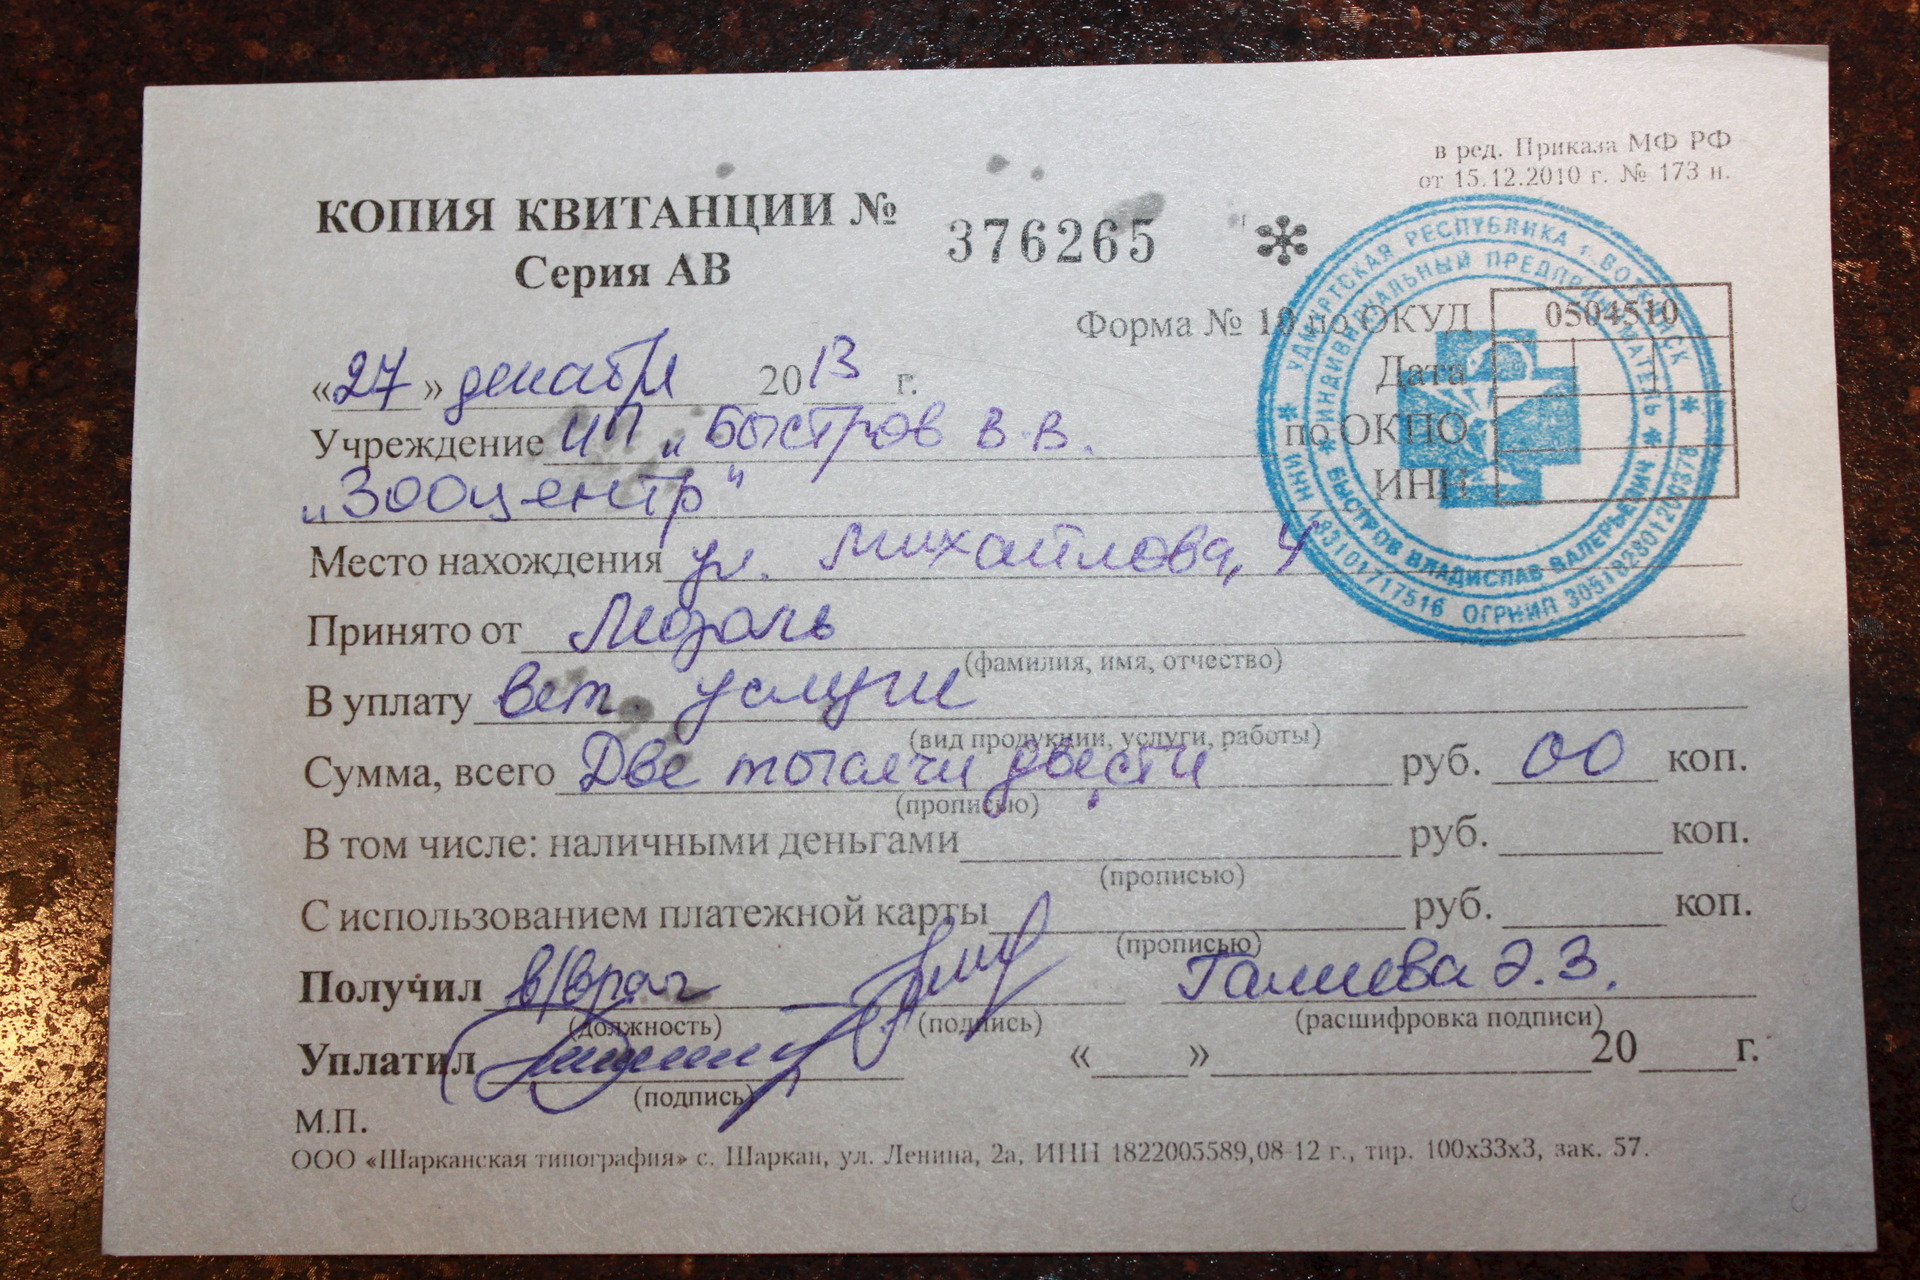 в ред. Приказа МФ РФ
от 15.12.2010 г. № 173 н.
КОПИЯ КВИТАНЦИИ № 376265 *
Серия АВ
Форма № 10 по ОКУД 0504510
Дата
по ОКПО
ИНН
«27» декабря 2013 г.
Учреждение ИП „Быстров В.В.
„Зооцентр"
Место нахождения ул. Михайлова, 4
Принято от Мозоль
(фамилия, имя, отчество)
В уплату вет. услуги
(вид продукции, услуги, работы)
Сумма, всего Две тысячи двести руб. 00 коп.
(прописью)
В том числе: наличными деньгами руб. коп.
(прописью)
С использованием платежной карты руб. коп.
(прописью)
Получил в/врач Галиева Э.З.
(должность) (подпись) (расшифровка подписи)
Уплатил « » 20 г.
(подпись)
М.П.
ООО «Шарканская типография» с. Шаркан, ул. Ленина, 2а, ИНН 1822005589,08-12 г., тир. 100х33х3, зак. 57.
* УДМУРТСКАЯ РЕСПУБЛИКА г. ВОТКИНСК *
ИНН 183101717516 ОГРНИП
* ИНДИВИДУАЛЬНЫЙ ПРЕДПРИНИМАТЕЛЬ *
БЫСТРОВ ВЛАДИСЛАВ ВАЛЕРЬЕВИЧ